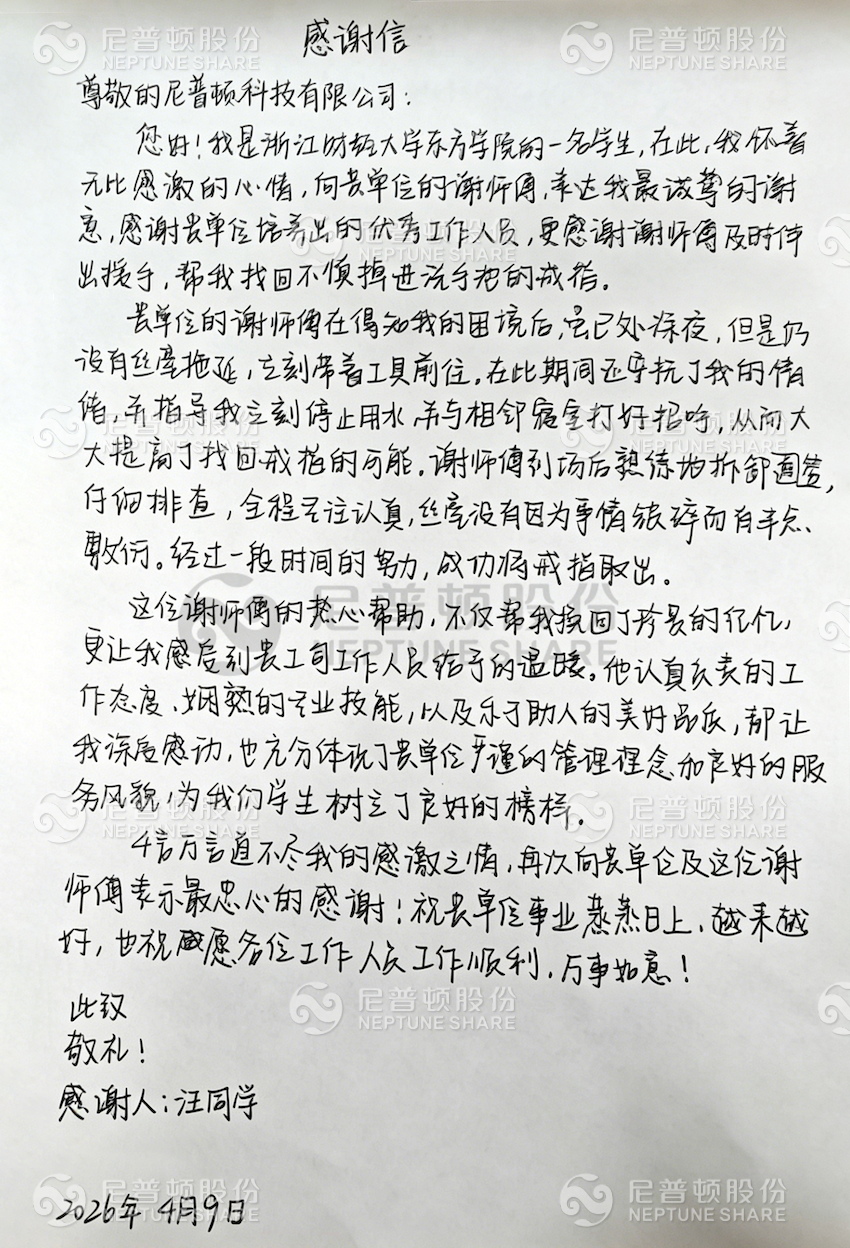 感谢信
尊敬的尼普顿科技有限公司：
您好！我是浙江财经大学东方学院的一名学生，在此，我怀着
无比感激的心情，向贵单位的谢师傅，表达我最诚挚的谢
意，感谢贵单位培养出的优秀工作人员，更感谢谢师傅及时伸
出援手，帮我找回不慎掉进洗手池的戒指。
贵单位的谢师傅在得知我的困境后，虽已处深夜，但是仍
没有丝毫拖延，立刻带着工具前往。在此期间还安抚了我的情
绪，并指导我立刻停止用水，并与相邻寝室打好招呼，从而大
大提高了找回戒指的可能。谢师傅到场后熟练地拆卸管，
仔细排查，全程专注认真，丝毫没有因为事情琐碎而有半点
敷衍。经过一段时间的努力，成功将戒指取出。
这位谢师傅的热心帮助，不仅帮我挽回了珍贵的记忆，
更让我感受到贵公司工作人员给予的温暖。他认真负责的工
作态度、娴熟的专业技能，以及乐于助人的美好品质，都让
我深受感动，也充分体现了贵单位严谨的管理理念和良好的服
务风貌，为我们学生树立了良好的榜样。
千言万语道不尽我的感激之情，再次向贵单位及这位谢
师傅表示最忠心的感谢！祝贵单位事业蒸蒸日上，越来越
好，也祝愿各位工作人员工作顺利，万事如意！
此致
敬礼！
感谢人：汪同学
2026年 4月9日
尼普顿股份
NEPTUNE SHARE